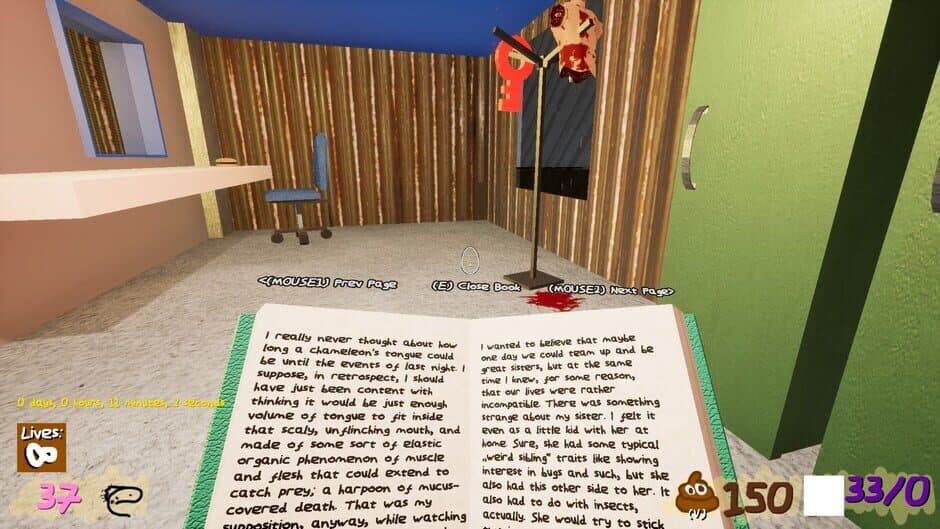 <(MOUSE1) Prev Page
(E) Close Book
(MOUSE2) Next Page>
I really never thought about how
long a chameleon's tongue could
be until the events of last night. I
suppose, in retrospect, I should
have just been content with
thinking it would be just enough
volume of tongue to fit inside
that scaly, unflinching mouth, and
made of some sort of elastic
organic phenomenon of muscle
and flesh that could extend to
catch prey; a harpoon of mucus-
covered death. That was my
supposition, anyway, while watching
I wanted to believe that maybe
one day we could team up and be
great sisters, but at the same
time I knew, for some reason,
that our lives were rather
incompatible. There was something
strange about my sister. I felt it
even as a little kid with her at
home. Sure, she had some typical
„weird sibling" traits like showing
interest in bugs and such, but she
also had this other side to her. It
also had to do with insects,
actually. She would try to stick
0 days, 0 hours, 12 minutes, 2 seconds
Lives:
37
(V)
150
33/0